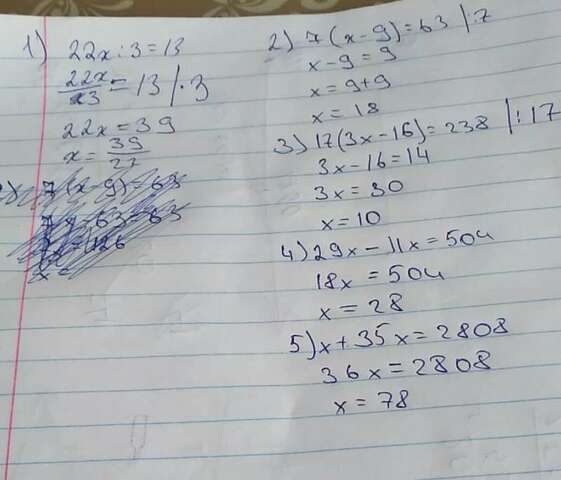 1) 22x:3=13
22x/3=13/·3
22x=39
x=39/22
7(x-9)=63
7x-63=63
x=126
2) 7(x-9)=63/:7
x-9=9
x=9+9
x=18
3) 17(3x-16)=238/:17
3x-16=14
3x=30
x=10
4) 29x-11x=504
18x=504
x=28
5) x+35x=2808
36x=2808
x=78